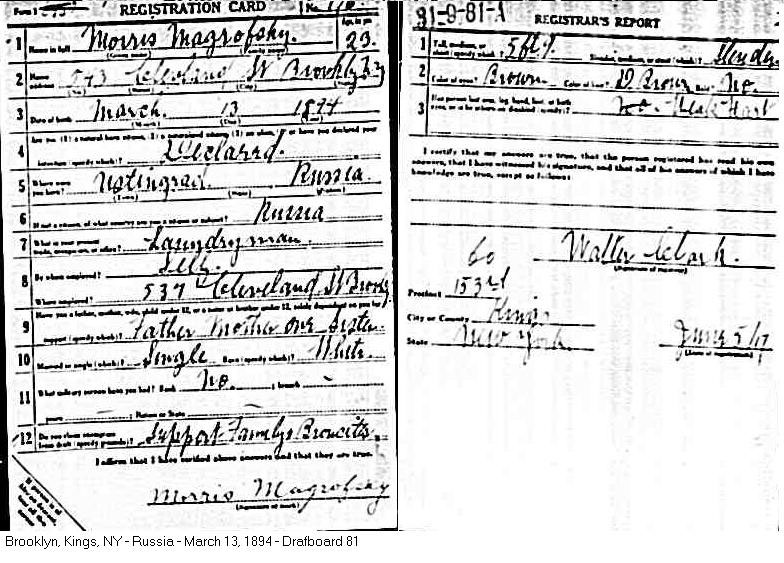 Form 1
REGISTRATION CARD
No.
Age, in yrs
1 Name in full Morris Magrofsky. 23
(Given name) (Family name)
2 Home address Cleveland St Brooklyn Ny
(No.) (Street) (City) (State)
3 Date of birth March 13 1894
(Month) (Day) (Year)
Are you (1) a natural born citizen, (2) a naturalized citizen, (3) an alien, or have you declared your
4 intention (specify which)? Declared.
5 Where were you born? Russia.
(Town) (State) (Nation)
6 If not a citizen, of what country are you a citizen or subject? Russia
7 What is your present trade, occupation, or office? Laundryman.
8 By whom employed? Self.
Where employed? 537 Cleveland St Brookly
9 Have you a father, mother, wife, child under 12, or a sister or brother under 12, solely dependent on you for
support (specify which)? Father Mother one Sister
10 Married or single (which)? Single Race (specify which)? White.
11 What military service have you had? Rank No. ; branch —
years — ; Nation or State —
12 Do you claim exemption from draft (specify grounds)? Support Family
I affirm that I have verified above answers and that they are true.
Morris Magrofsky
(Signature or mark)
If person is of African descent, tear off this corner
31-9-81-A
REGISTRAR'S REPORT
1 Tall, medium, or short (specify which)? 5ft Slender, medium, or stout (which)? Slender
2 Color of eyes? Brown Color of hair? D Brown Bald? No.
3 Has person lost arm, leg, hand, foot, or both eyes, or is he otherwise disabled (specify)? No.
I certify that my answers are true, that the person registered has read his own
answers, that I have witnessed his signature, and that all of his answers of which I have
knowledge are true, except as follows:
60 Walter Clark.
(Signature of registrar)
Precinct 153rd
City or County Kings
State New York. June 5/17
(Date of registration)
Brooklyn, Kings, NY - Russia - March 13, 1894 - Drafboard 81